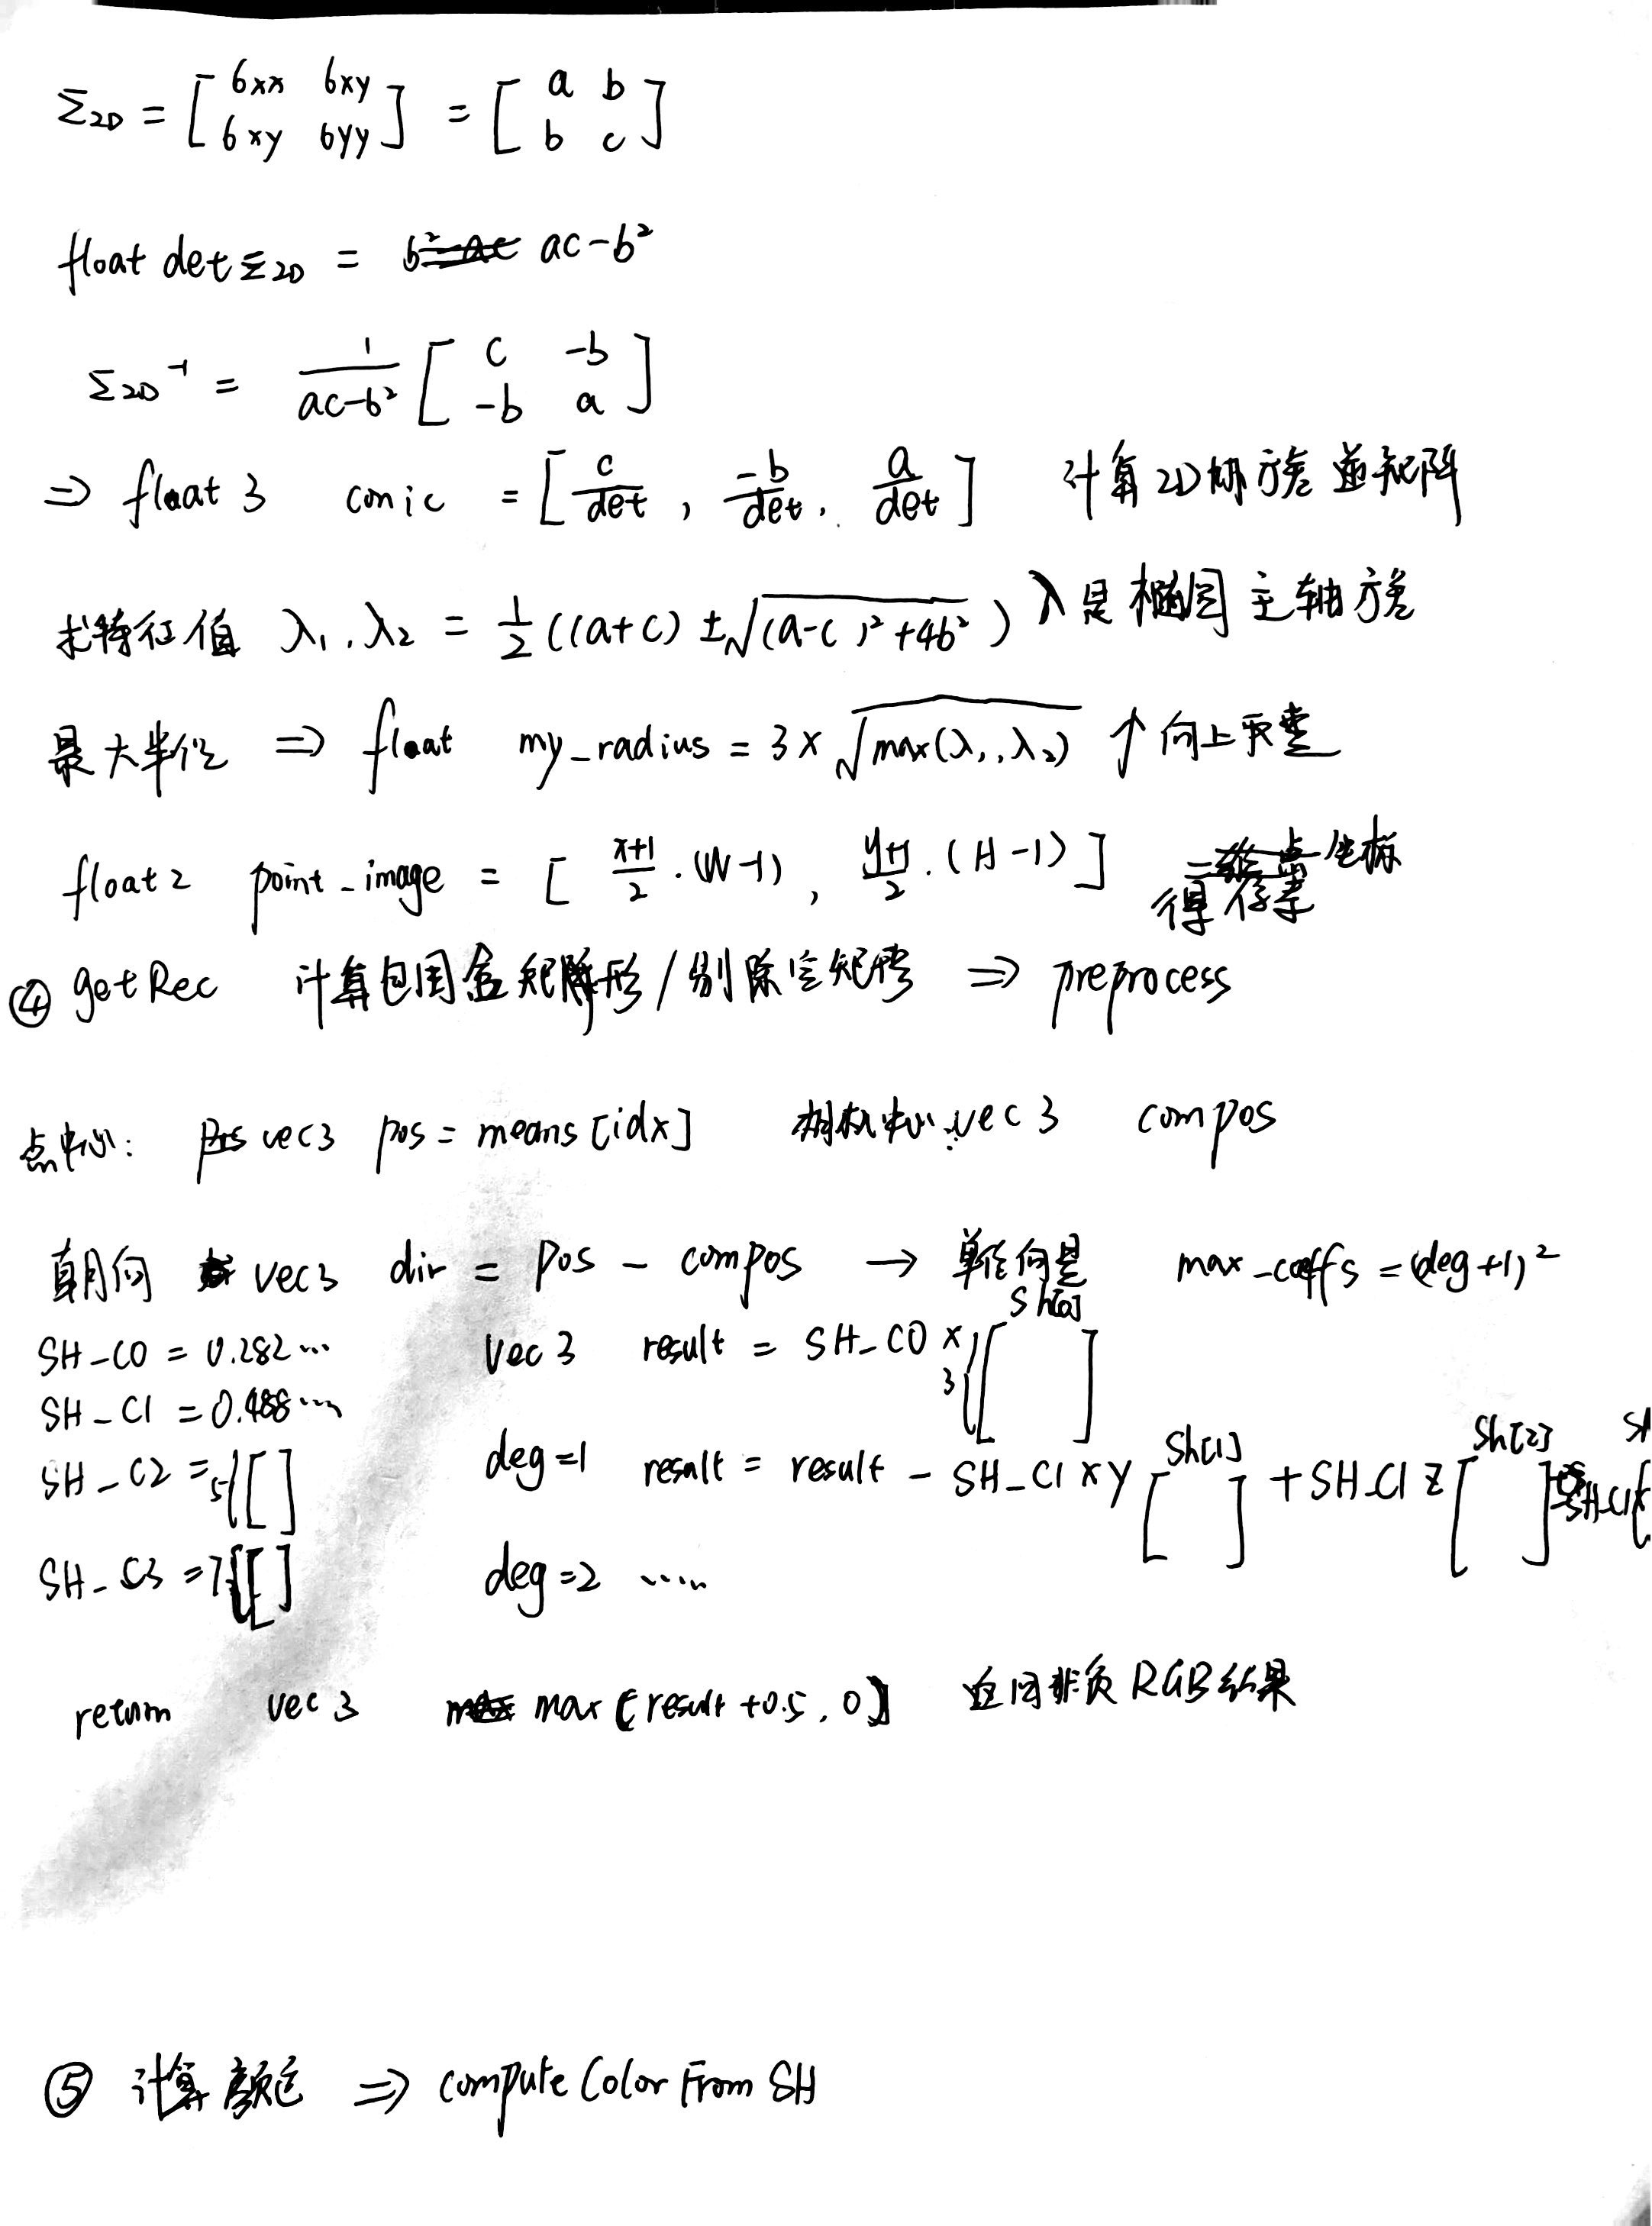 Σ2D = [ 6xx 6xy
6xy 6yy ] = [ a b
b c ]
float det Σ2D = b²-ac ac-b²
Σ2D⁻¹ = 1/(ac-b²) [ c -b
-b a ]
⇒ float 3 conic = [ c/det , -b/det , a/det ] 计算2D协方差逆矩阵
求特征值 λ₁, λ₂ = 1/2 ((a+c) ±√((a-c)²+4b²)) λ是椭圆主轴方差
最大半径 ⇒ float my_radius = 3×√max(λ₁,λ₂) ↑向上取整
float2 point_image = [ (x+1)/2 · (W-1) , (y+1)/2 · (H-1) ] 得像素坐标
④ getRec 计算包围盒矩形/剔除空矩形 ⇒ preprocess
点中心: vec3 pos = means[idx] 相机中心: vec3 compos
朝向 vec3 dir = pos - compos → 单位向量 max_coeffs = (deg+1)²
SH_C0 = 0.282... vec3 result = SH_C0 × 3{[ ] sh[0]
SH_C1 = 0.488...
SH_C2 = 5{[ ] deg=1 result = result - SH_C1 × y [ ] sh[1] + SH_C1 z [ ] sh[2] - SH_C1x[
SH_C3 = 7{[ ] deg=2 .....
return vec3 max[result+0.5, 0] 返回非负RGB结果
⑤ 计算颜色 ⇒ compute Color From SH